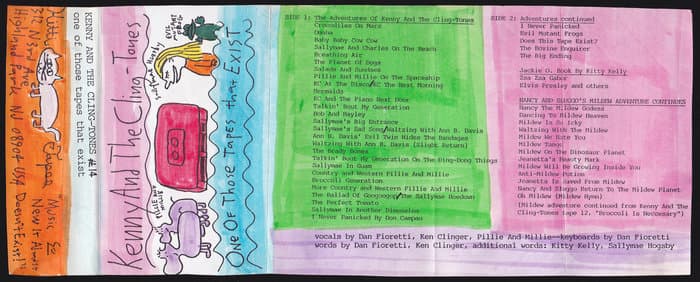 Kitty
Tapes Music So
312 N. 3rd Ave New It Almost
Highland Park, NJ 08904 USA Doesn't Exist!
KENNY AND THE CLING-TONES #14
one of those tapes that exist
Kenny And The Cling-Tones
SALLYMAE HOGSBY
EVIL MUTANT FROG
PILLIE AND MILLIE
One Of Those Tapes that EXIST
SIDE 1: The Adventures Of Kenny And The Cling-Tones
Crocodiles On Mars
Omaha
Baby Baby Cow Cow
Sallymae And Charles On The Beach
Breathing Air
The Planet Of Eggs
Salads And Sundaes
Pillie And Millie On The Spaceship
KC At The Disco/KC The Next Morning
Mermaids
KC And The Piano Next Door
Talkin' Bout My Generation
Bob And Hayley
Sallymae's Big Entrance
Sallymae's Sad Song/Waltzing With Ann B. Davis
Ann B. Davis' Evil Twin Hides The Bandages
Waltzing With Ann B. Davis (Slight Return)
The Brady Bones
Talkin' Bout My Generation On The Ding-Dong Things
Sallymae In Guam
Country and Western Pillie And Millie
Broccoli Generation
More Country and Western Pillie And Millie
The Ballad Of Googoogoo/The Sallymae Hoedown
The Perfect Tomato
Sallymae In Another Dimension
I Never Panicked By Don Campau
SIDE 2: Adventures continued
I Never Panicked
Evil Mutant Frogs
Does This Tape Exist?
The Bovine Enquirer
The Big Ending
Jackie O. Book By Kitty Kelly
Zsa Zsa Gabor
Elvis Presley and others
NANCY AND SLUGGO'S MILDEW ADVENTURE CONTINUES
Nancy The Mildew Goddess
Dancing To Mildew Heaven
Mildew Is So Icky
Waltzing With The Mildew
Mildew We Hate You
Mildew Tango
Mildew On The Dinosaur Planet
Joanetta's Beauty Mark
Mildew Will Be Growing Inside You
Anti-Mildew Potion
Joanetta Is Saved From Mildew
Nancy And Sluggo Return To The Mildew Planet
Oh Mildew (Mildew Hymn)
(Mildew adventure continued from Kenny And The
Cling-Tones tape 12, "Broccoli Is Necessary")
vocals by Dan Fioretti, Ken Clinger, Pillie And Millie--keyboards by Dan Fioretti
words by Dan Fioretti, Ken Clinger, additional words: Kitty Kelly, Sallymae Hogsby